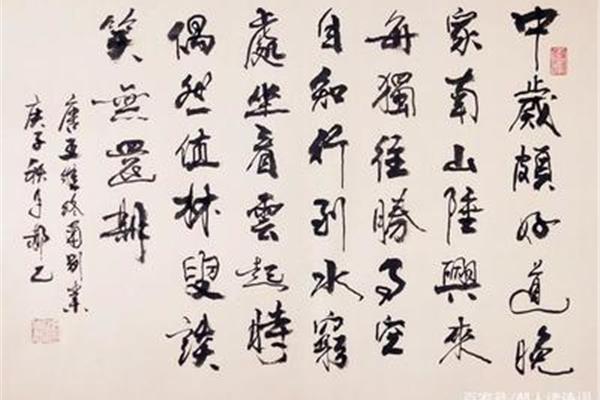 中歲頗好道晚
家南山陲興來
每獨往勝事空
自知行到水窮
處坐看雲起時
偶然值林叟談
笑無還期
唐王維終南別業
庚子秋月